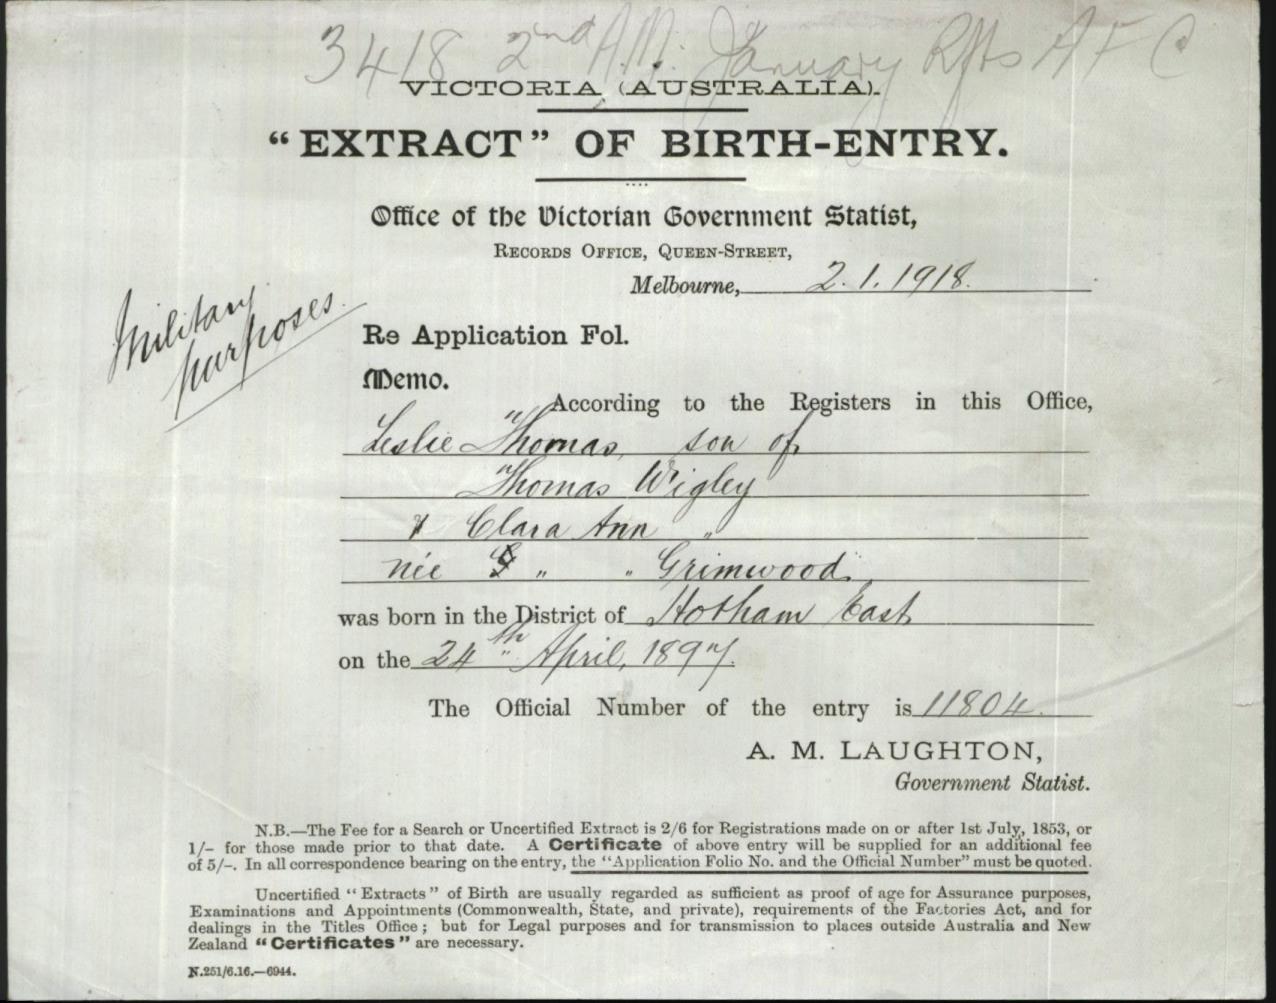 3418 2nd A.M. January Rfts A F C
VICTORIA (AUSTRALIA).
"EXTRACT" OF BIRTH-ENTRY.
Office of the Victorian Government Statist,
RECORDS OFFICE, QUEEN-STREET,
Melbourne, 2.1.1918.
Military
purposes.
Re Application Fol.
Memo.
According to the Registers in this Office,
Leslie Thomas, son of
Thomas Wigley
& Clara Ann "
née " " Grimwood.
was born in the District of Hotham East
on the 24th April, 1897.
The Official Number of the entry is 11804.
A. M. LAUGHTON,
Government Statist.
N.B.—The Fee for a Search or Uncertified Extract is 2/6 for Registrations made on or after 1st July, 1853, or
1/- for those made prior to that date. A Certificate of above entry will be supplied for an additional fee
of 5/-. In all correspondence bearing on the entry, the "Application Folio No. and the Official Number" must be quoted.
Uncertified "Extracts" of Birth are usually regarded as sufficient as proof of age for Assurance purposes,
Examinations and Appointments (Commonwealth, State, and private), requirements of the Factories Act, and for
dealings in the Titles Office; but for Legal purposes and for transmission to places outside Australia and New
Zealand "Certificates" are necessary.
N.251/6.16.—6944.